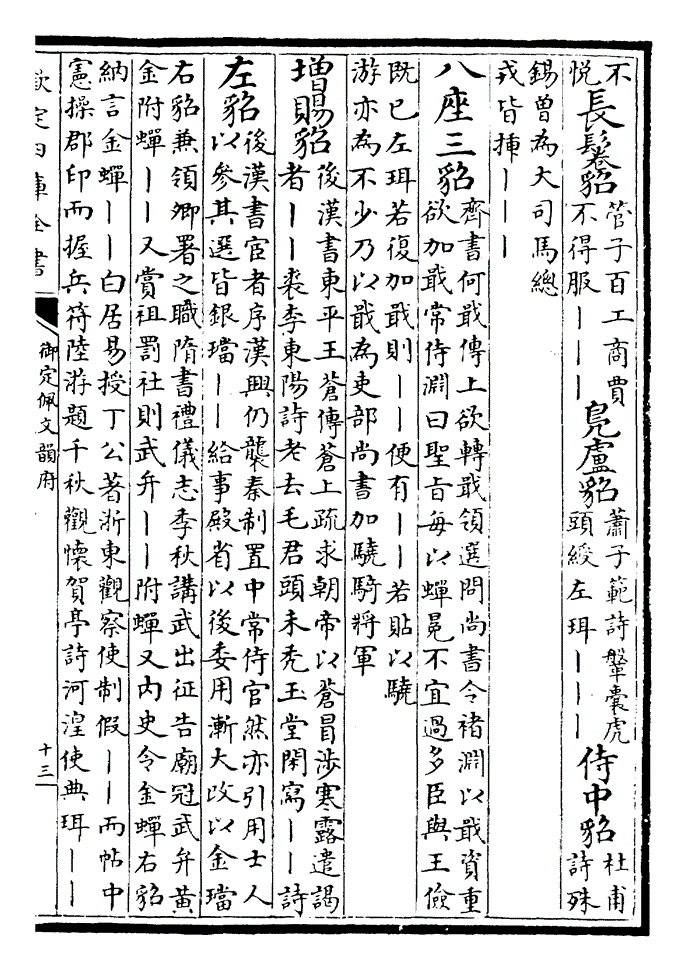 不
悅
長鬈貂
管子百工商賈
不得服｜｜｜
鳧盧貂
蕭子範詩鞶囊虎
頭綬左珥｜｜｜
侍中貂
杜甫
詩殊
錫曾為大司馬總
戎皆揷｜｜｜
八座三貂
齊書何戢傳上欲轉戢領選問尚書令褚淵以戢資重
欲加戢常侍淵曰聖旨每以蟬冕不宜過多臣與王儉
既已左珥若復加戢則｜｜便有｜｜若貼以驍
游亦為不少乃以戢為吏部尚書加驍騎將軍
增賜貂
後漢書東平王蒼傳蒼上疏求朝帝以蒼冒渉寒露遣謁
者｜｜裘李東陽詩老去毛君頭未秃玉堂閑寫｜｜詩
左貂
後漢書宦者序漢興仍襲秦制置中常侍官然亦引用士人
以參其選皆銀璫｜｜給事殿省以後委用漸大改以金璫
右貂兼領卿署之職隋書禮儀志季秋講武出征告廟冠武弁黃
金附蟬｜｜又賞祖罰社則武弁｜｜附蟬又内史令金蟬右貂
納言金蟬｜｜白居易授丁公著浙東觀察使制假｜｜而帖中
憲操郡印而握兵符陸游題千秋觀懷賀亭詩河湟使典珥｜｜
欽定四庫全書
御定佩文韻府
十三